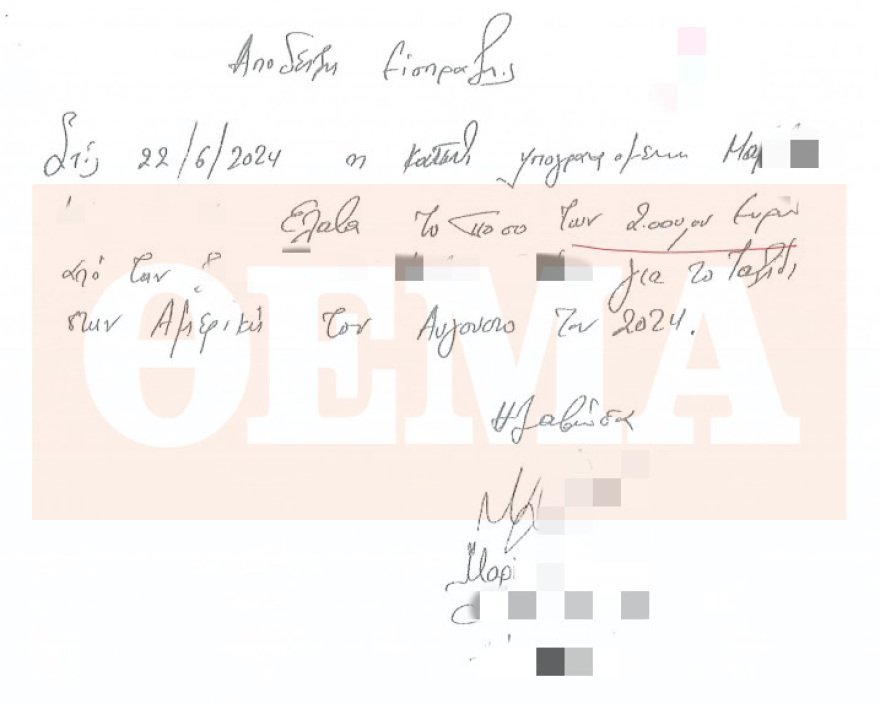 Αποδειξη Είσπραξης
Στις 22/6/2024 η κατωθι υπογραφομενη Μαρ
Ελαβα το ποσο των 2.000,00 Ευρω
από τον για το ταξίδι
στην Αμερική τον Αυγουστο του 2024.
Η λαβούσα
Μαρι
ΘΕΜΑ